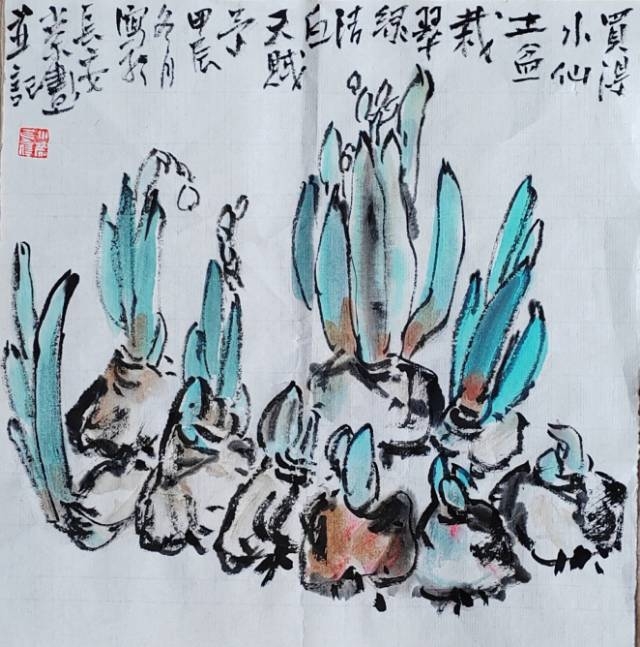 買得
水仙
土盆
栽
翠
绿
洁
白
天賦
予
甲辰
冬月
寫於
長安
畫
並記